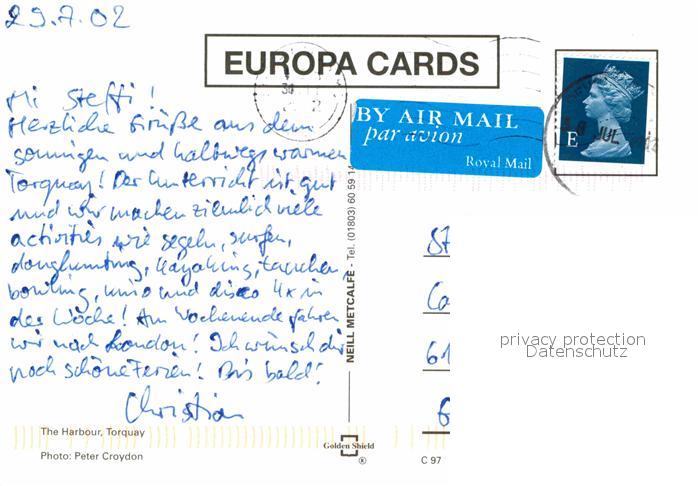 29.7.02
EUROPA CARDS
Hi Steffi!
Herzliche Grüße aus dem
sonnigen und halbwegs warmen
Torquay! Der Unterricht ist gut
und wir machen ziemlich viele
activities wie segeln, surfen,
kayaking, tauchen,
bowling, und disco 4x in
der Woche! Am Wochenende fahren
wir nach London! Ich wünsch dir
noch schöne Ferien! Bis bald!
Christian
BY AIR MAIL
par avion
Royal Mail
E
JUL
NEILL METCALFE - Tel. (01803) 60 59 14
St
Ca
61
privacy protection
Datenschutz
The Harbour, Torquay
Photo: Peter Croydon
Golden Shield
®
C 97